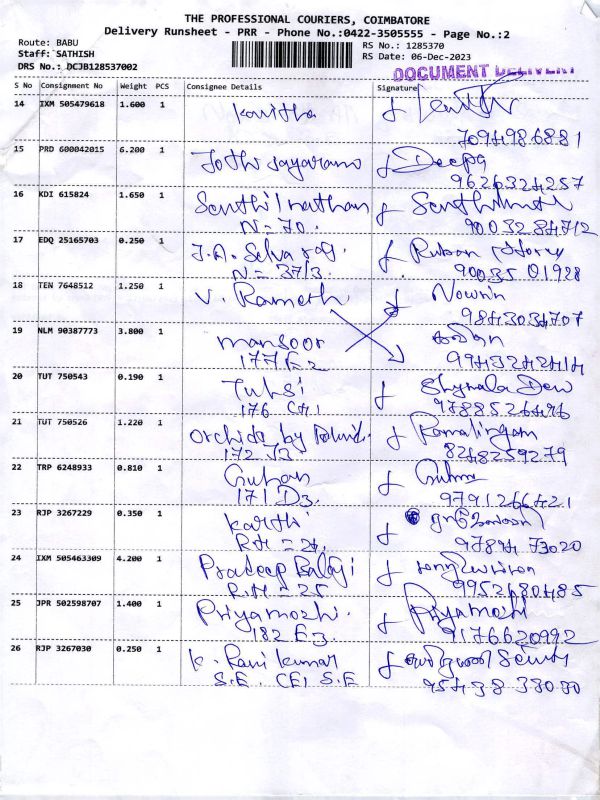 THE PROFESSIONAL COURIERS, COIMBATORE
Delivery Runsheet - PRR - Phone No.:0422-3505555 - Page No.:2
Route: BABU
RS No.: 1285370
Staff: SATHISH
RS Date: 06-Dec-2023
DRS No.: DCJB128537002
DOCUMENT DELIVERY
S No Consignment No Weight PCS Consignee Details Signature
14 IXM 505479618 1.600 1 Kavitha
7094986881
15 PRD 600042015 6.200 1 Jothi Jayaraman Deepa
9626324257
16 KDI 615824 1.650 1 Senthil nathan
N = 70. 9003284712
17 EDQ 25165703 0.250 1 J.A. Selvaraj. Ruban
N = 37/3 90035 01928
18 TEN 7648512 1.250 1 V. Ramesh
9843034707
19 NLM 90387773 3.800 1 mansoor
177 E2 9943242414
20 TUT 750543 0.190 1 Tulsi Shymala Devi
176 C4.1 9788526496
21 TUT 750526 1.220 1 Orchids by Ramalingam
172 J3 8248259279
22 TRP 6248933 0.810 1 Guhan
171 D3. 9791266421
23 RJP 3267229 0.350 1 Karthi
97894 73020
24 IXM 505463309 4.200 1 Pradeep Balaji
R.H = 25 9952680485
25 JPR 502598707 1.400 1 Priyamozhi. Priyamozhi
182 E3 9176620992
26 RJP 3267030 0.250 1 K. Ravi Kumar
S.E. CEI S.E